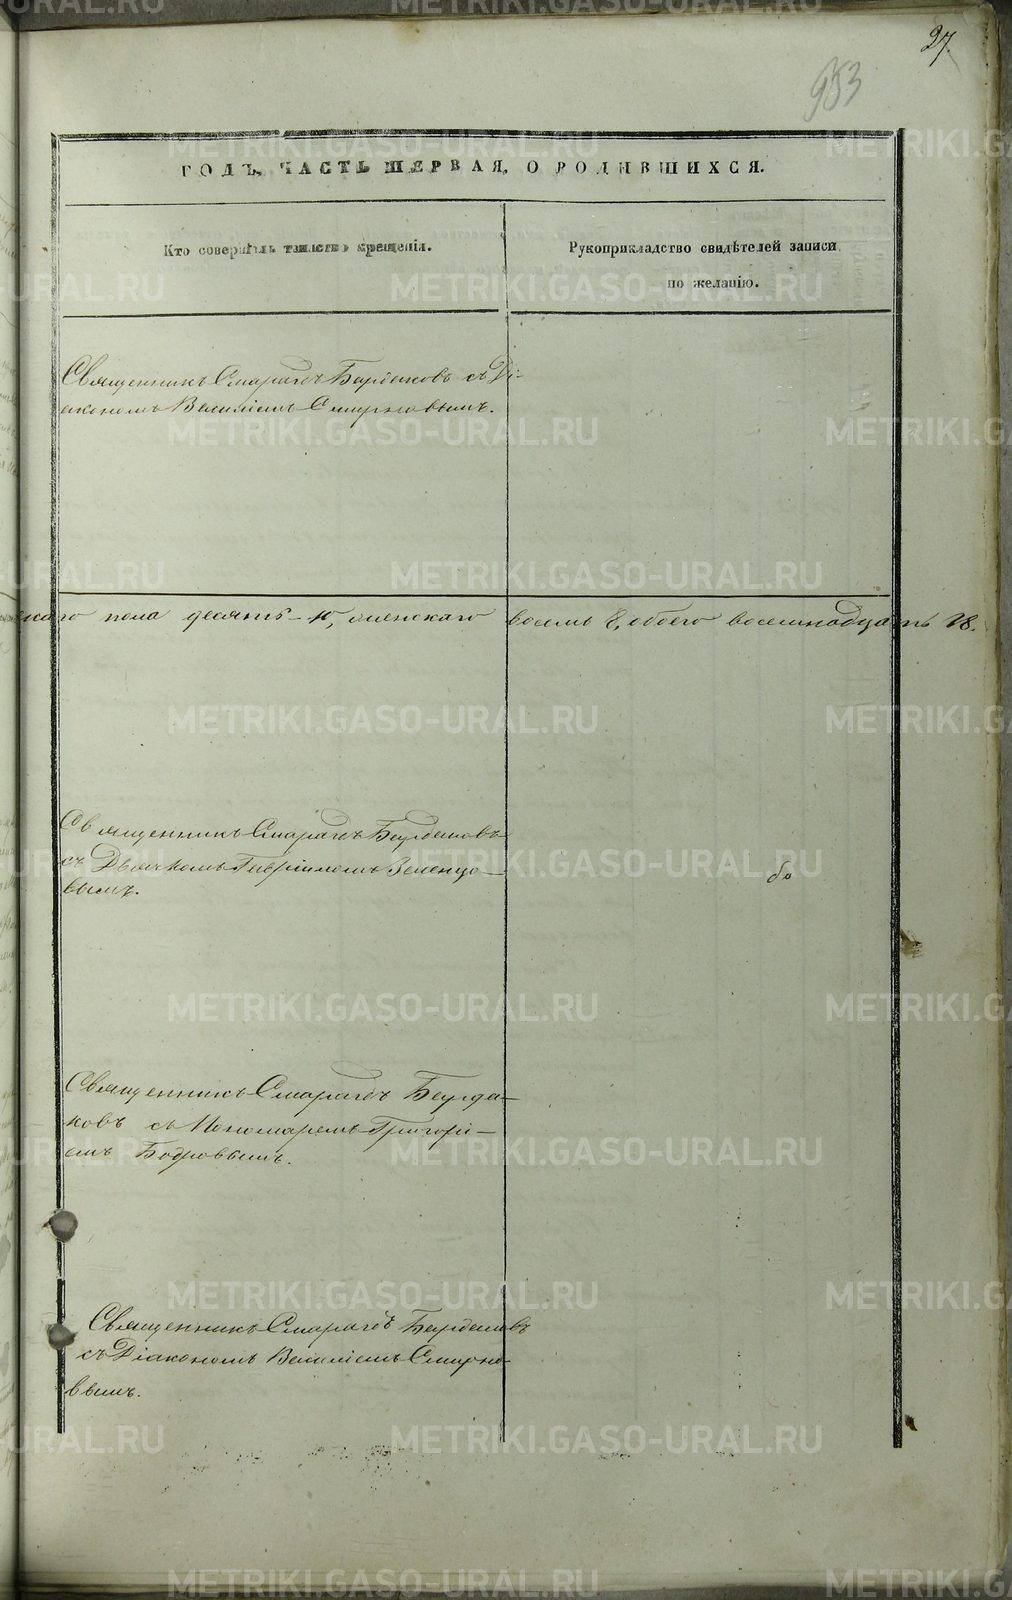 27.
953
ГОДЪ, ЧАСТЬ ПЕРВАЯ, О РОДИВШИХСЯ.
Кто совершалъ таинство крещенія.
Рукоприкладство свидѣтелей записи
по желанію.
Священникъ Смарагдъ Бардаковъ съ Ді-
акономъ Василіемъ Смирновымъ.
скаго пола десять - 10, женскаго восемь 8, обоего восемнадцать 18.
Священникъ Смарагдъ Бурдаковъ
съ Дьячкомъ Гавріиломъ Зеленцо-
вымъ.
Священникъ Смарагдъ Бурда-
ковъ съ Пономаремъ Григорі-
емъ Бодровымъ.
Священникъ Смарагдъ Бурдаковъ
съ Діакономъ Василіемъ Смирно-
вымъ.
METRIKI.GASO-URAL.RU